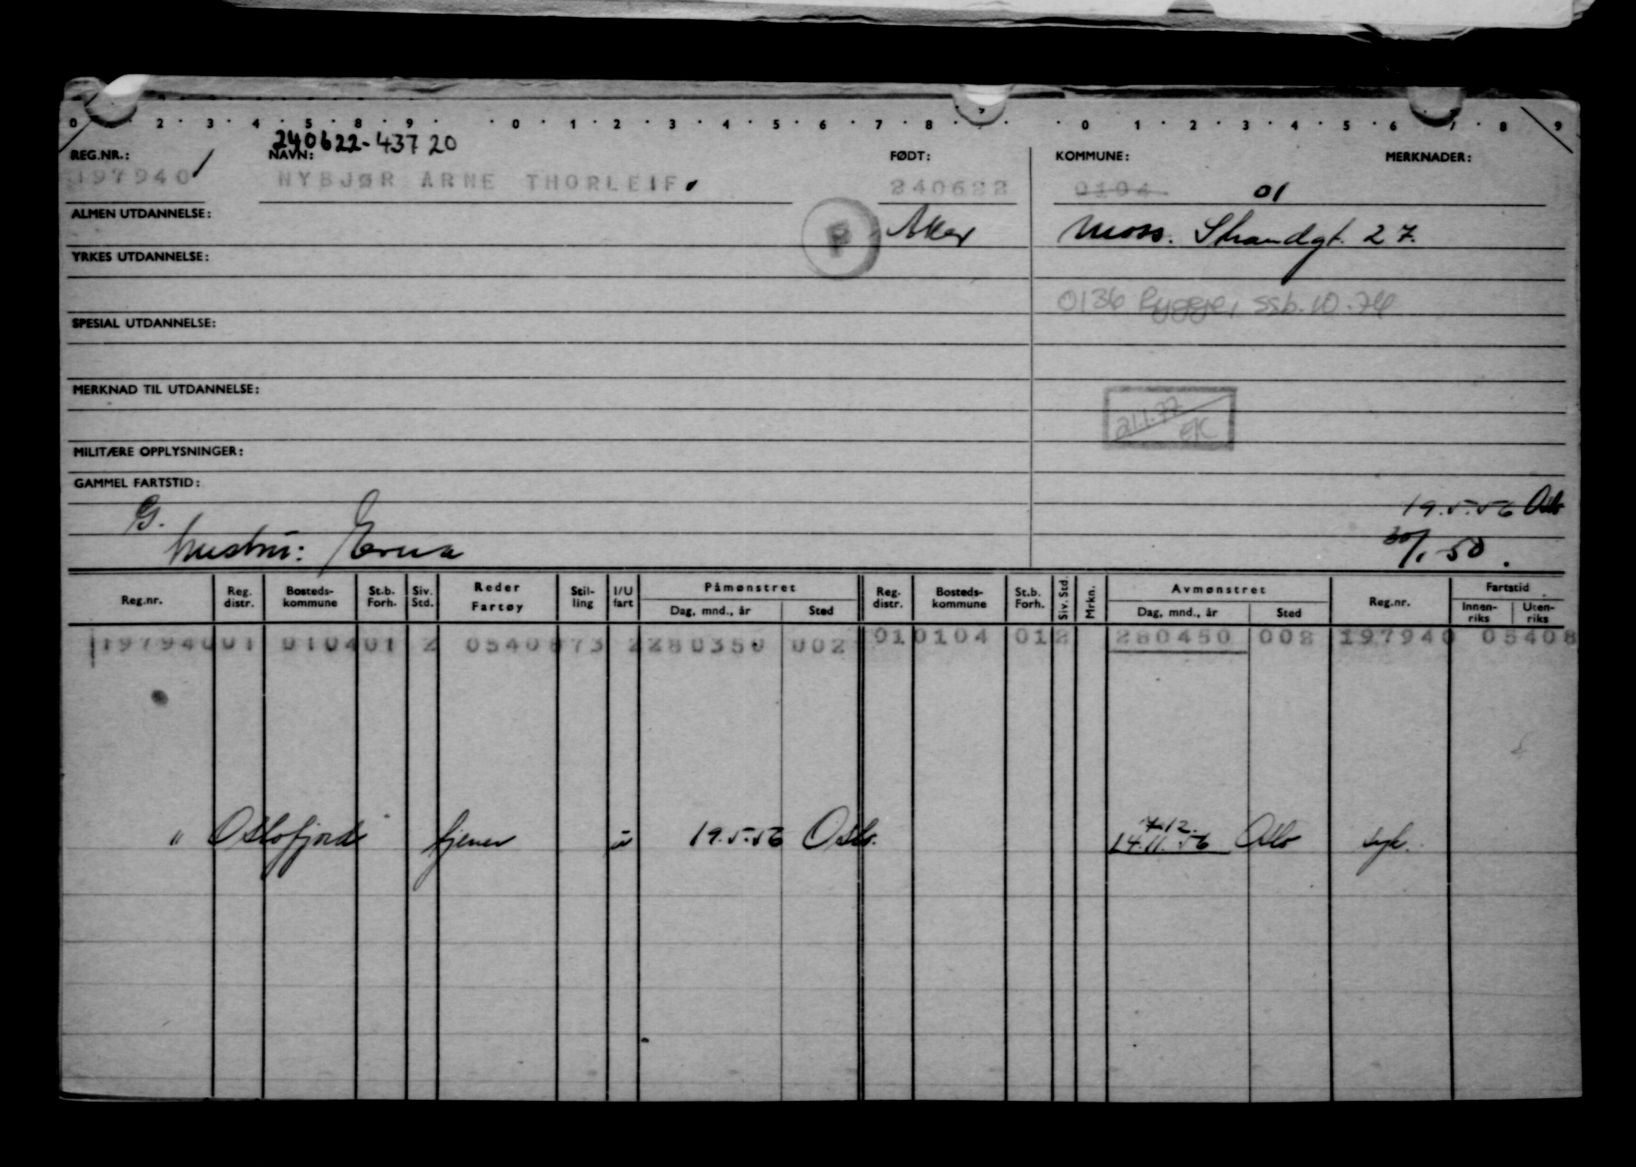 0 2 3 4 5 8 9 0 1 2 3 4 5 6 7 8 9 0 1 2 3 4 5 6 7 8 9
240622-43720
REG.NR.: NAVN: FØDT: KOMMUNE: MERKNADER:
197940 NYBJØR ARNE THORLEIF 240622 0104 01
ALMEN UTDANNELSE: P Aker Moss. Strandgt. 27.
YRKES UTDANNELSE:
0136 Rygge, ssb. 10.74
SPESIAL UTDANNELSE:
MERKNAD TIL UTDANNELSE:
21.1.72
EK
MILITÆRE OPPLYSNINGER:
GAMMEL FARTSTID:
G. 19.5.56 Oslo
hustru: Erna 30/1-50.
Reg.nr. Reg. distr. Bosteds-kommune St.b. Forh. Siv. Std. Reder Fartøy Stil-ling I/U fart Påmønstret Dag, mnd., år Sted Reg. distr. Bosteds-kommune St.b. Forh. Siv. Std Mrkn. Avmønstret Dag, mnd., år Sted Reg.nr. Fartstid Innen-riks Uten-riks
197940 01 0104 01 2 05408 73 2 280350 002 01 0104 01 2 280450 002 197940 05408
7.12.
" Oslofjord tjener u 19.5.56 Oslo. 14.11.56 Oslo syk.